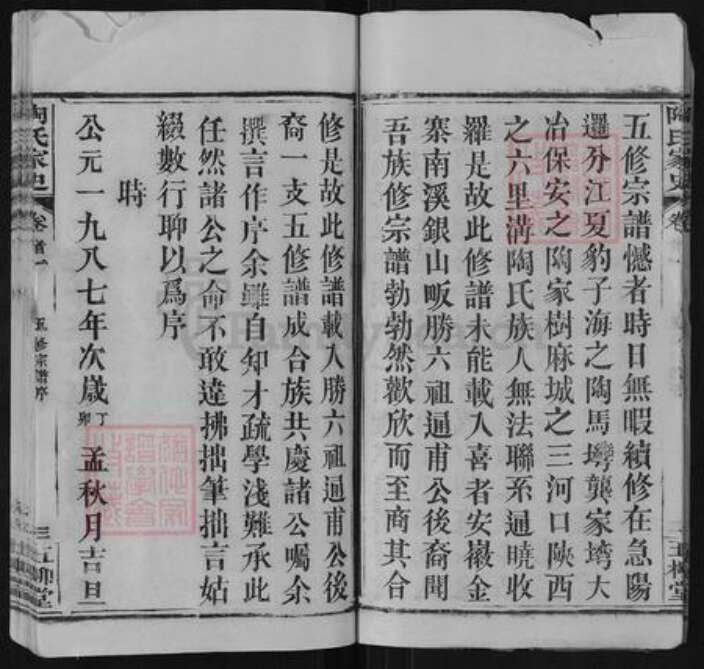 五修宗譜憾者時日無暇續修在急陽
邏分江夏豹子海之陶馬塆龔家塆大
冶保安之陶家樹麻城之三河口陝西
之六里溝陶氏族人無法聯系通曉收
羅是故此修譜未能載入喜者安徽金
寨南溪銀山畈勝六祖通甫公後裔聞
吾族修宗譜勃勃然歡欣而至商其合
修是故此修譜載入勝六祖通甫公後
裔一支五修譜成合族共慶諸公囑余
撰言作序余雖自知才疏學淺難承此
任然諸公之命不敢違拂拙筆拙言姑
綴數行聊以爲序
時
公元一九八七年次歲丁卯孟秋月吉旦
陶氏家史 卷首一 五修宗譜序 三 五柳堂